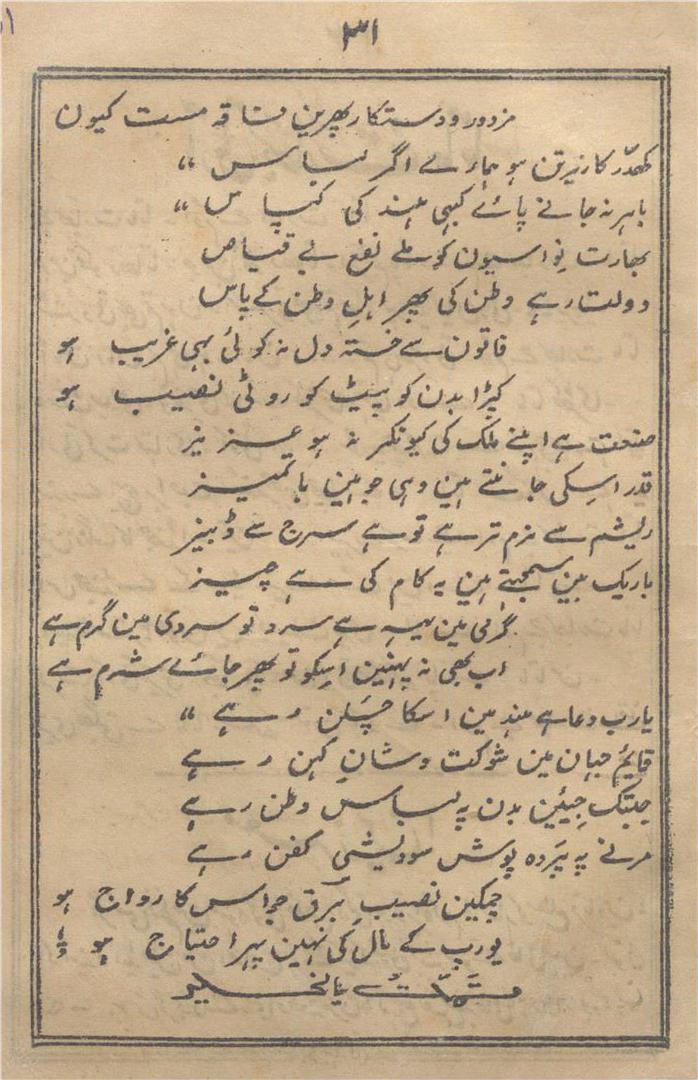 ۳۱
مزدور و دستکار پھرین فاقہ مست کیون
کھدّر کا زیرتن ہو ہمارے اگر لباس ״
باہر نہ جانے پائے کبہی ہند کی کپاس ״
بھارت نواسیون کو ملے نفع بے قیاس
دولت رہے وطن کی پھر اہلِ وطن کے پاس
قانون سے خستہ دل نہ کوئی بہی غریب ہو
کپڑا بدن کو پیٹ کو روٹی نصیب ہو
صنعت ہے اپنے ملک کی کیونکر نہ ہو عزیز
قدر اسکی جانتے ہین وہی جو ہین باتمیز
ریشم سے نرم تر ہے تو ہے سرج سے ڈبیز
باریک بین سمجہتے ہین یہ کام کی ہے چیز
گرمی مین یہ ہے سرد تو سردی مین گرم ہے
اب بھی نہ پہنین اسکو تو پھر جائے شرم ہے
یارب دعا ہے ہند مین اسکا چَلن رہے ״
قایم جہان مین شوکت و شانِ کہن رہے
جبتک جِئین بدن پہ لباس وطن رہے
مرنے پہ پَردہ پوش سودیشی کفن رہے
چمکین نصیب برق جو اس کا رواج ہو
یورپ کے مال کی نہین پہر احتیاج ہو
تمّت بالخیر